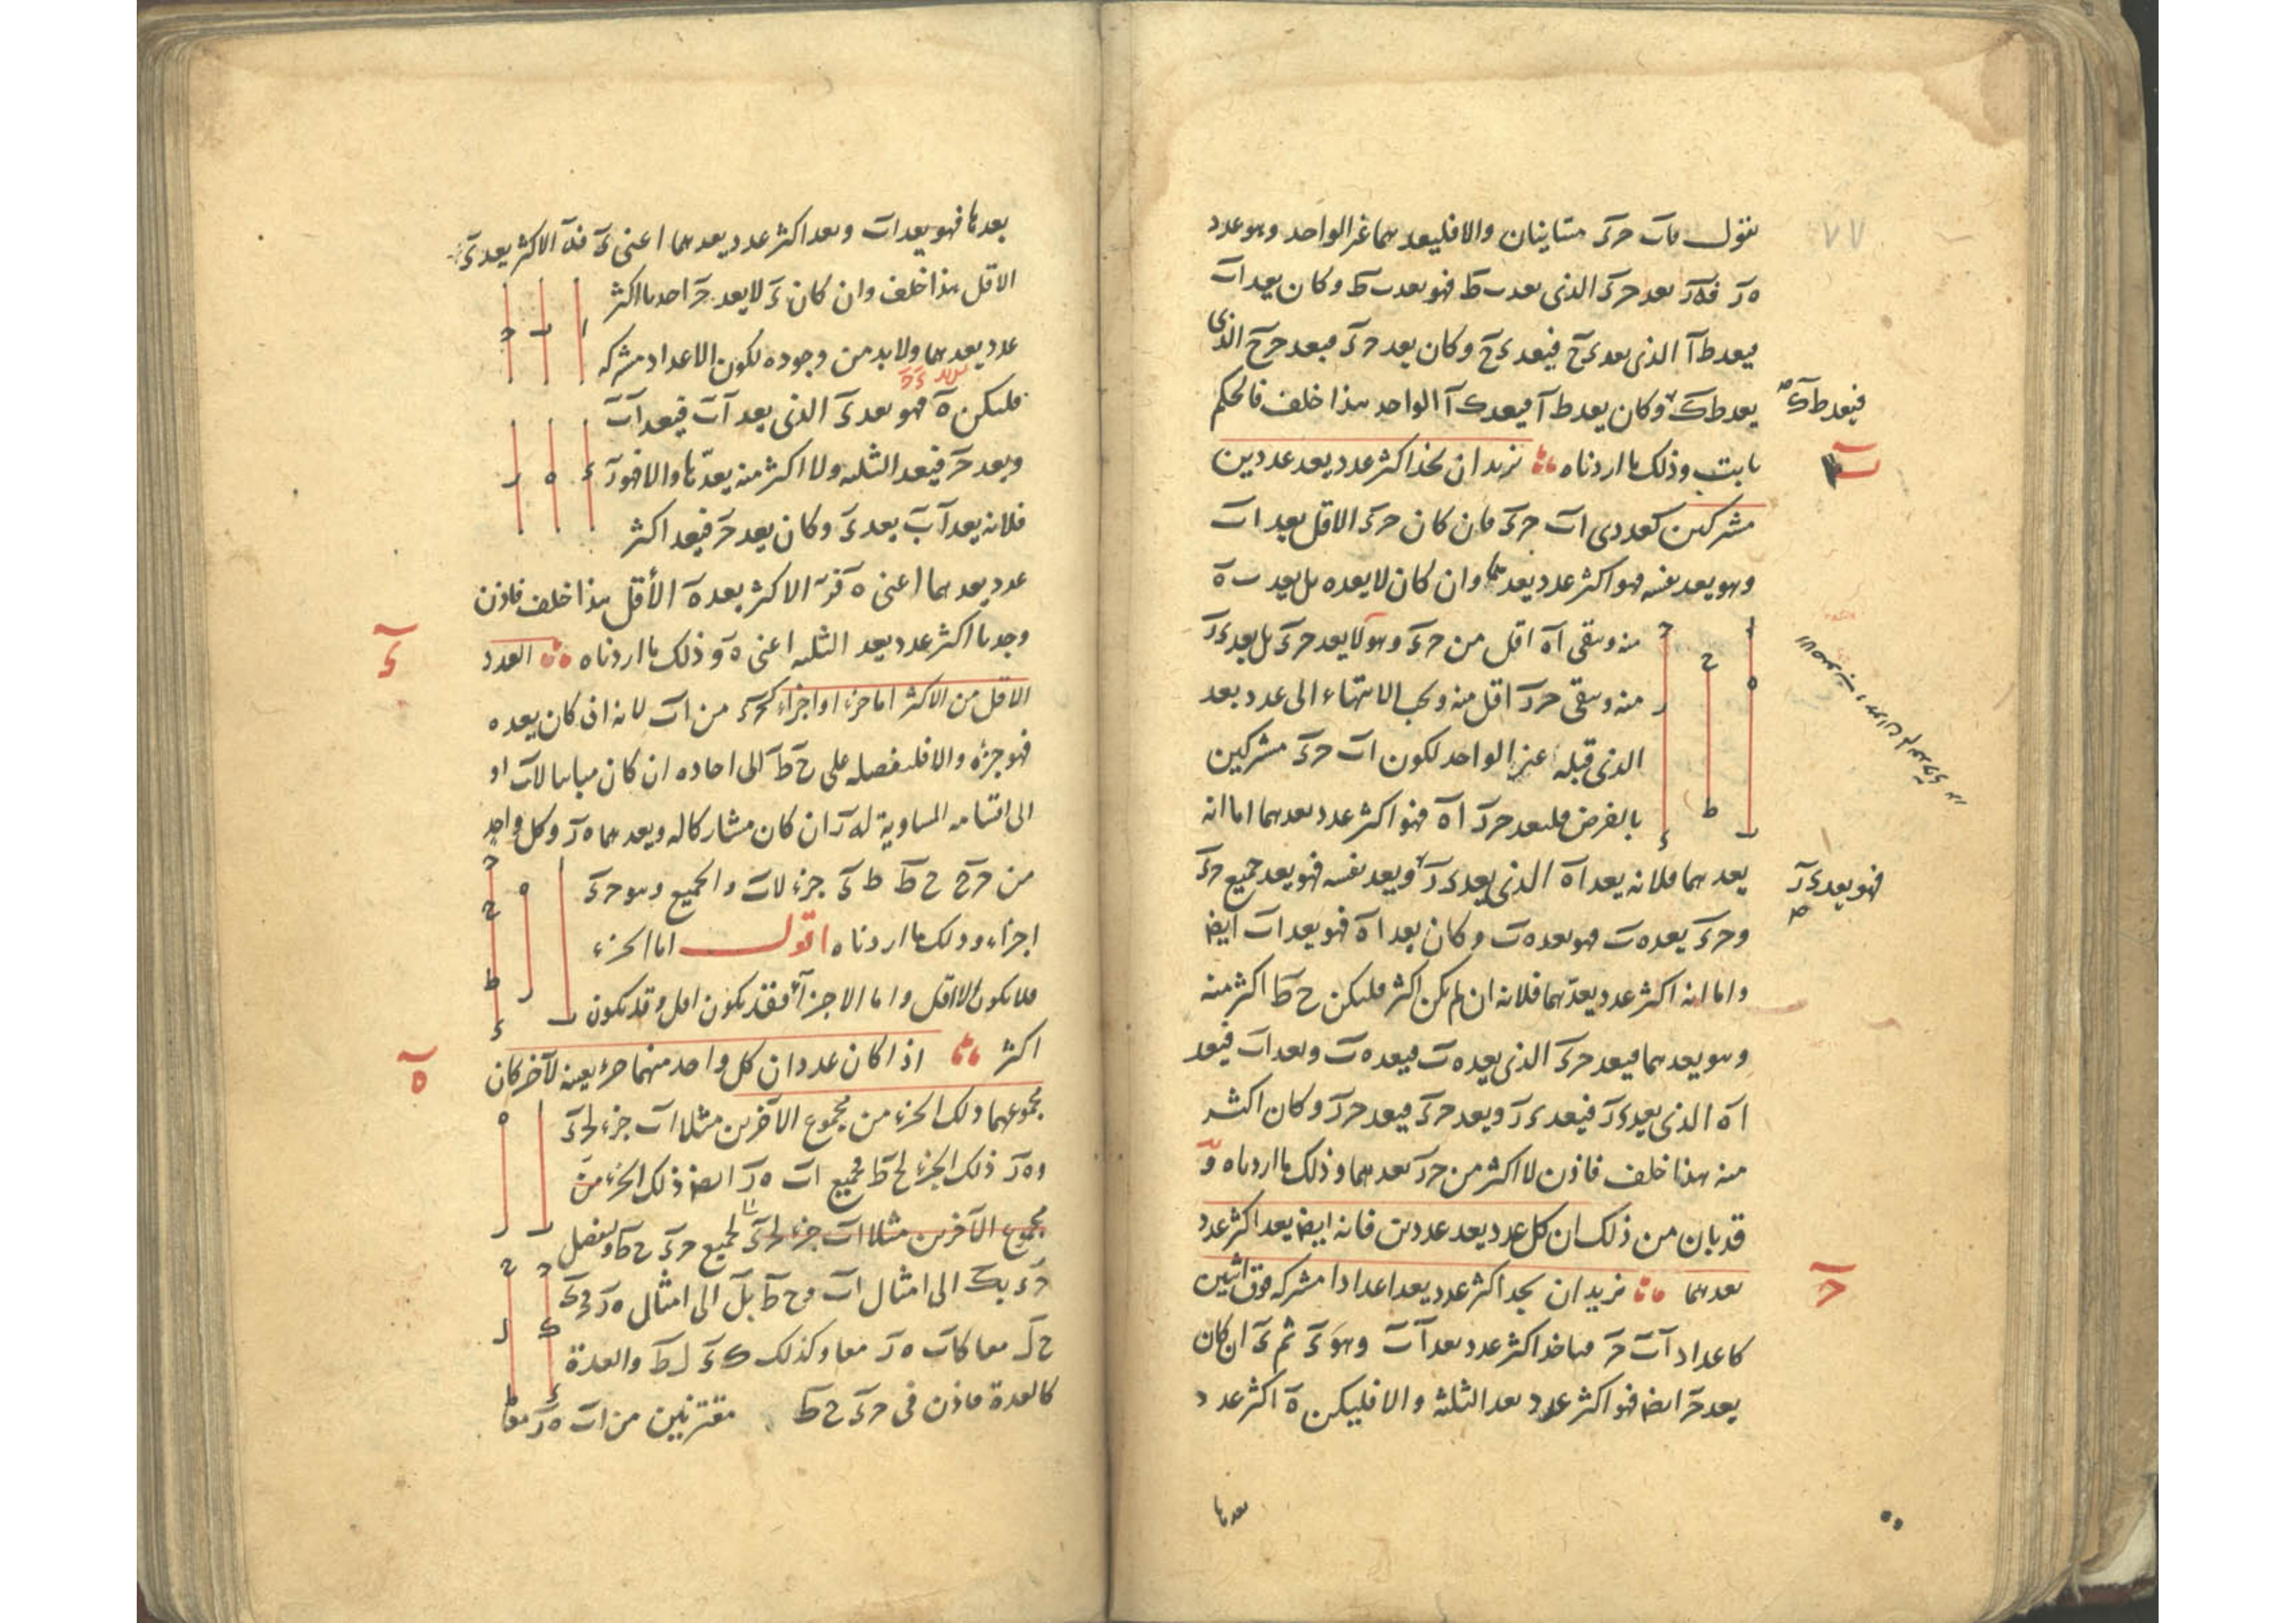 ٧٧
نقول فاب حء متباينان والا فليعد هما غير الواحد وهو عدد
ه ر فه ر يعد حء الذى يعد ب ط فهو يعد ب ط وكان يعد ا ب
فيعد ط ا الذى يعد ء ح فيعد ء ح وكان يعد حء فيعد ح ح الذى
يعد ط ك وكان يعد ط ا فيعد ك ا الواحد هذا خلف فالحكم
فيعد ط ك
ثابت وذلك ما اردناه نريد ان نجد اكثر عدد يعد عددين
ب
مشتركين كعددى ا ب حء فان كان حء الاقل يعد ا ب
وهو يعد نفسه فهو اكثر عدد يعدهما وان كان لا يعده بل يعد ب ه
منه ويبقى ا ه اقل من حء وهو لا يعد حء بل يعد ء ر
منه ويبقى ح ر اقل منه ويجب الانتهاء الى عدد يعد
الذى قبله غير الواحد لكون ا ب حء مشتركين
بالفرض فليعد ح ر ا ه فهو اكثر عدد يعدهما اما انه
يعدهما فلانه يعد ا ه الذى يعد ء ر ويعد نفسه فهو يعد جميع حء
فهو يعد ء ر
وحء يعد ه ب فهو يعد ه ب وكان يعد ا ه فهو يعد ا ب ايضا
واما انه اكثر عدد يعدهما فلانه ان لم يكن اكثر فليكن ح ط اكثر منه
وهو يعدهما فيعد حء الذى يعد ه ب فيعد ه ب ويعد ا ب فيعد
ا ه الذى يعد ء ر فيعد ء ر ويعد حء فيعد ح ر وكان اكثر
منه هذا خلف فاذن لا اكثر من ح ر يعدهما وذلك ما اردناه و
قد بان من ذلك ان كل عدد يعد عددين فانه ايضا يعد اكثر عدد
يعدهما نريد ان نجد اكثر عدد يعد اعدادا مشتركة فوق اثنين
ح
كاعداد ا ب ح فناخذ اكثر عدد يعد ا ب وهو ء ثم ء ان كان
يعد ح ايضا فهو اكثر عدد يعد الثلثة والا فليكن ه اكثر عدد
يعدها
يعدها فهو يعد ا ب ويعد اكثر عدد يعدهما اعنى ء فه الاكثر يعد ء
الاقل هذا خلف وان كان ء لا يعد ح اخذنا اكثر
عدد يعدهما ولا بد من وجوده لكون الاعداد مشتركة
فليكن ه فهو يعد ء الذى يعد ا ب فيعد ا ب
ويعد ح فيعد الثلثة ولا اكثر منه يعدها والا فهو ر
فلانه يعد ا ب يعد ء وكان يعد ح فيعد اكثر
عدد يعدهما اعنى ه فر الاكثر يعد ه الأقل هذا خلف فاذن
وجدنا اكثر عدد يعد الثلثة اعنى ه وذلك ما اردناه العدد
ء
الاقل من الاكثر اما جزء او اجزاء كحء من ا ب لانه ان كان يعده
فهو جزؤه والا فلنفصله على ح ط الى احاده ان كان مباينا لاب او
الى اقسامه المساوية له ر ان كان مشاركا له ويعدهما ه ر وكل واحد
من ح ح ح ط ط ء جزء لاب والجميع وهو حء
اجزاء وذلك ما اردناه اقول اما الجزء
فلا يكون الا اقل واما الاجزآء فقد يكون اقل وقد يكون
اكثر اذا كان عددان كل واحد منهما جزء بعينه لآخر كان
ه
مجموعهما ذلك الجزء من مجموع الآخرين مثلا ا ب جزء لحء
وه ر ذلك الجزء لح ط فجميع ا ب ه ر ايضا ذلك الجزء من
مجموع الآخرين مثلا ا ب جزء لحء لجميع حء ح ط ولنفصل
حء بك الى امثال ا ب وح ط بل الى امثال ه ر فح ك
ح ل معا كاب ه ر معا وكذلك ك ء ل ط والعدة
كالعدة فاذن فى حء ح ط مقترنين من ا ب ه ر معا